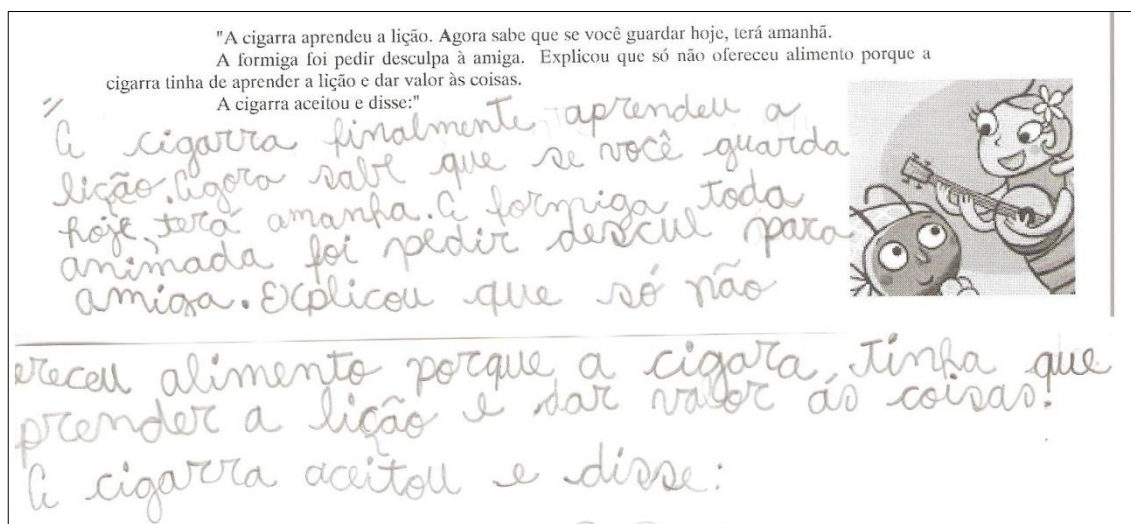 "A cigarra aprendeu a lição. Agora sabe que se você guardar hoje, terá amanhã.
A formiga foi pedir desculpa à amiga. Explicou que só não ofereceu alimento porque a
cigarra tinha de aprender a lição e dar valor às coisas.
A cigarra aceitou e disse:"
A cigarra finalmente aprendeu a
lição. Agora sabe que se você guarda
hoje, terá amanha. A formiga toda
animada foi pedir descul para
amiga. Explicou que só não
ereceu alimento porque a cigara tinha que
prender a lição e dar valor ás coisas.
A cigarra aceitou e disse: